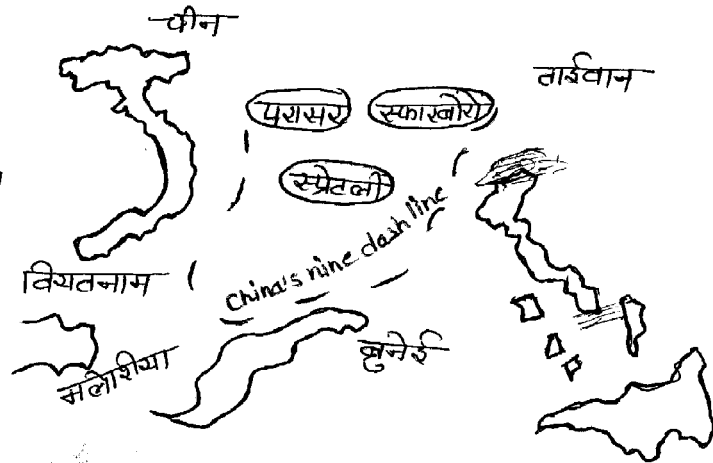 चीन
ताईवान
परासर
स्फारबोरो
स्प्रेटली
China's nine dash line
वियतनाम
मलेशिया
ब्रुनेई